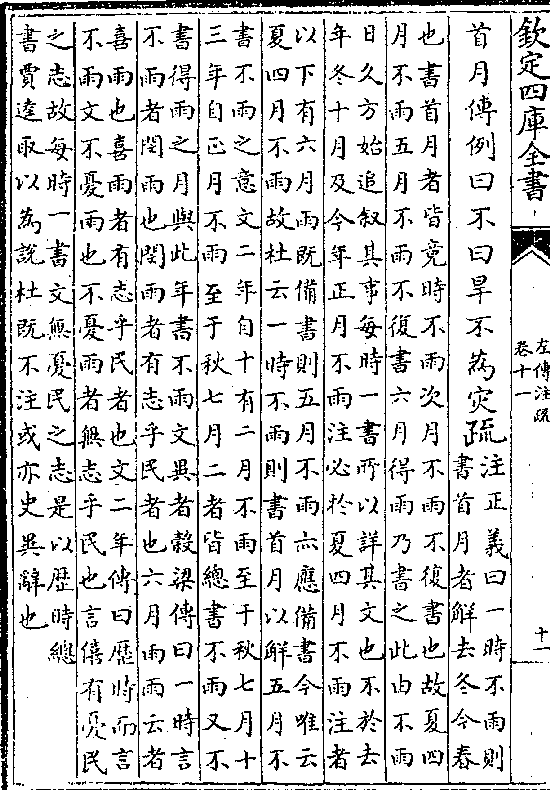 欽定四庫全書
左傳注疏
卷十一
十一
首月傳例曰不曰旱不為災疏
注正義曰一時不雨則
書首月者解去冬今春
也書首月者皆竟時不雨次月不雨不復書也故夏四
月不雨五月不雨不復書六月得雨乃書之此由不雨
日久方始追叙其事每時一書所以詳其文也不於去
年冬十月及今年正月不雨注必於夏四月不雨注者
以下有六月雨既備書則五月不雨亦應備書今唯云
夏四月不雨故杜云一時不雨則書首月以解五月不
書不雨之意文二年自十有二月不雨至于秋七月十
三年自正月不雨至于秋七月二者皆總書不雨又不
書得雨之月與此年書不雨文異者穀梁傳曰一時言
不雨者閔雨也閔雨者有志乎民者也六月雨雨云者
喜雨也喜雨者有志乎民者也文二年傳曰歴時而言
不雨文不憂雨也不憂雨者無志乎民也言僖有憂民
之志故每時一書文無憂民之志是以歴時總
書賈逵取以為說杜既不注或亦史異辭也